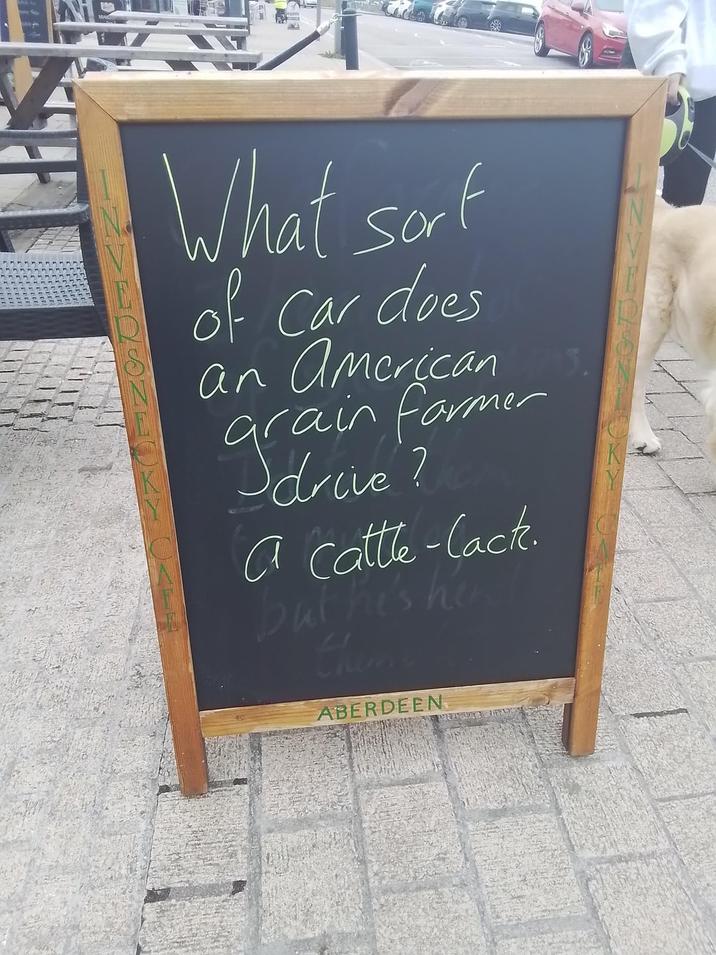 What sort
of car does
an American
grain farmer
drive?
a cattle-lack.
INVERSNECKY CAFE
INVERSNECKY CAFE
ABERDEEN